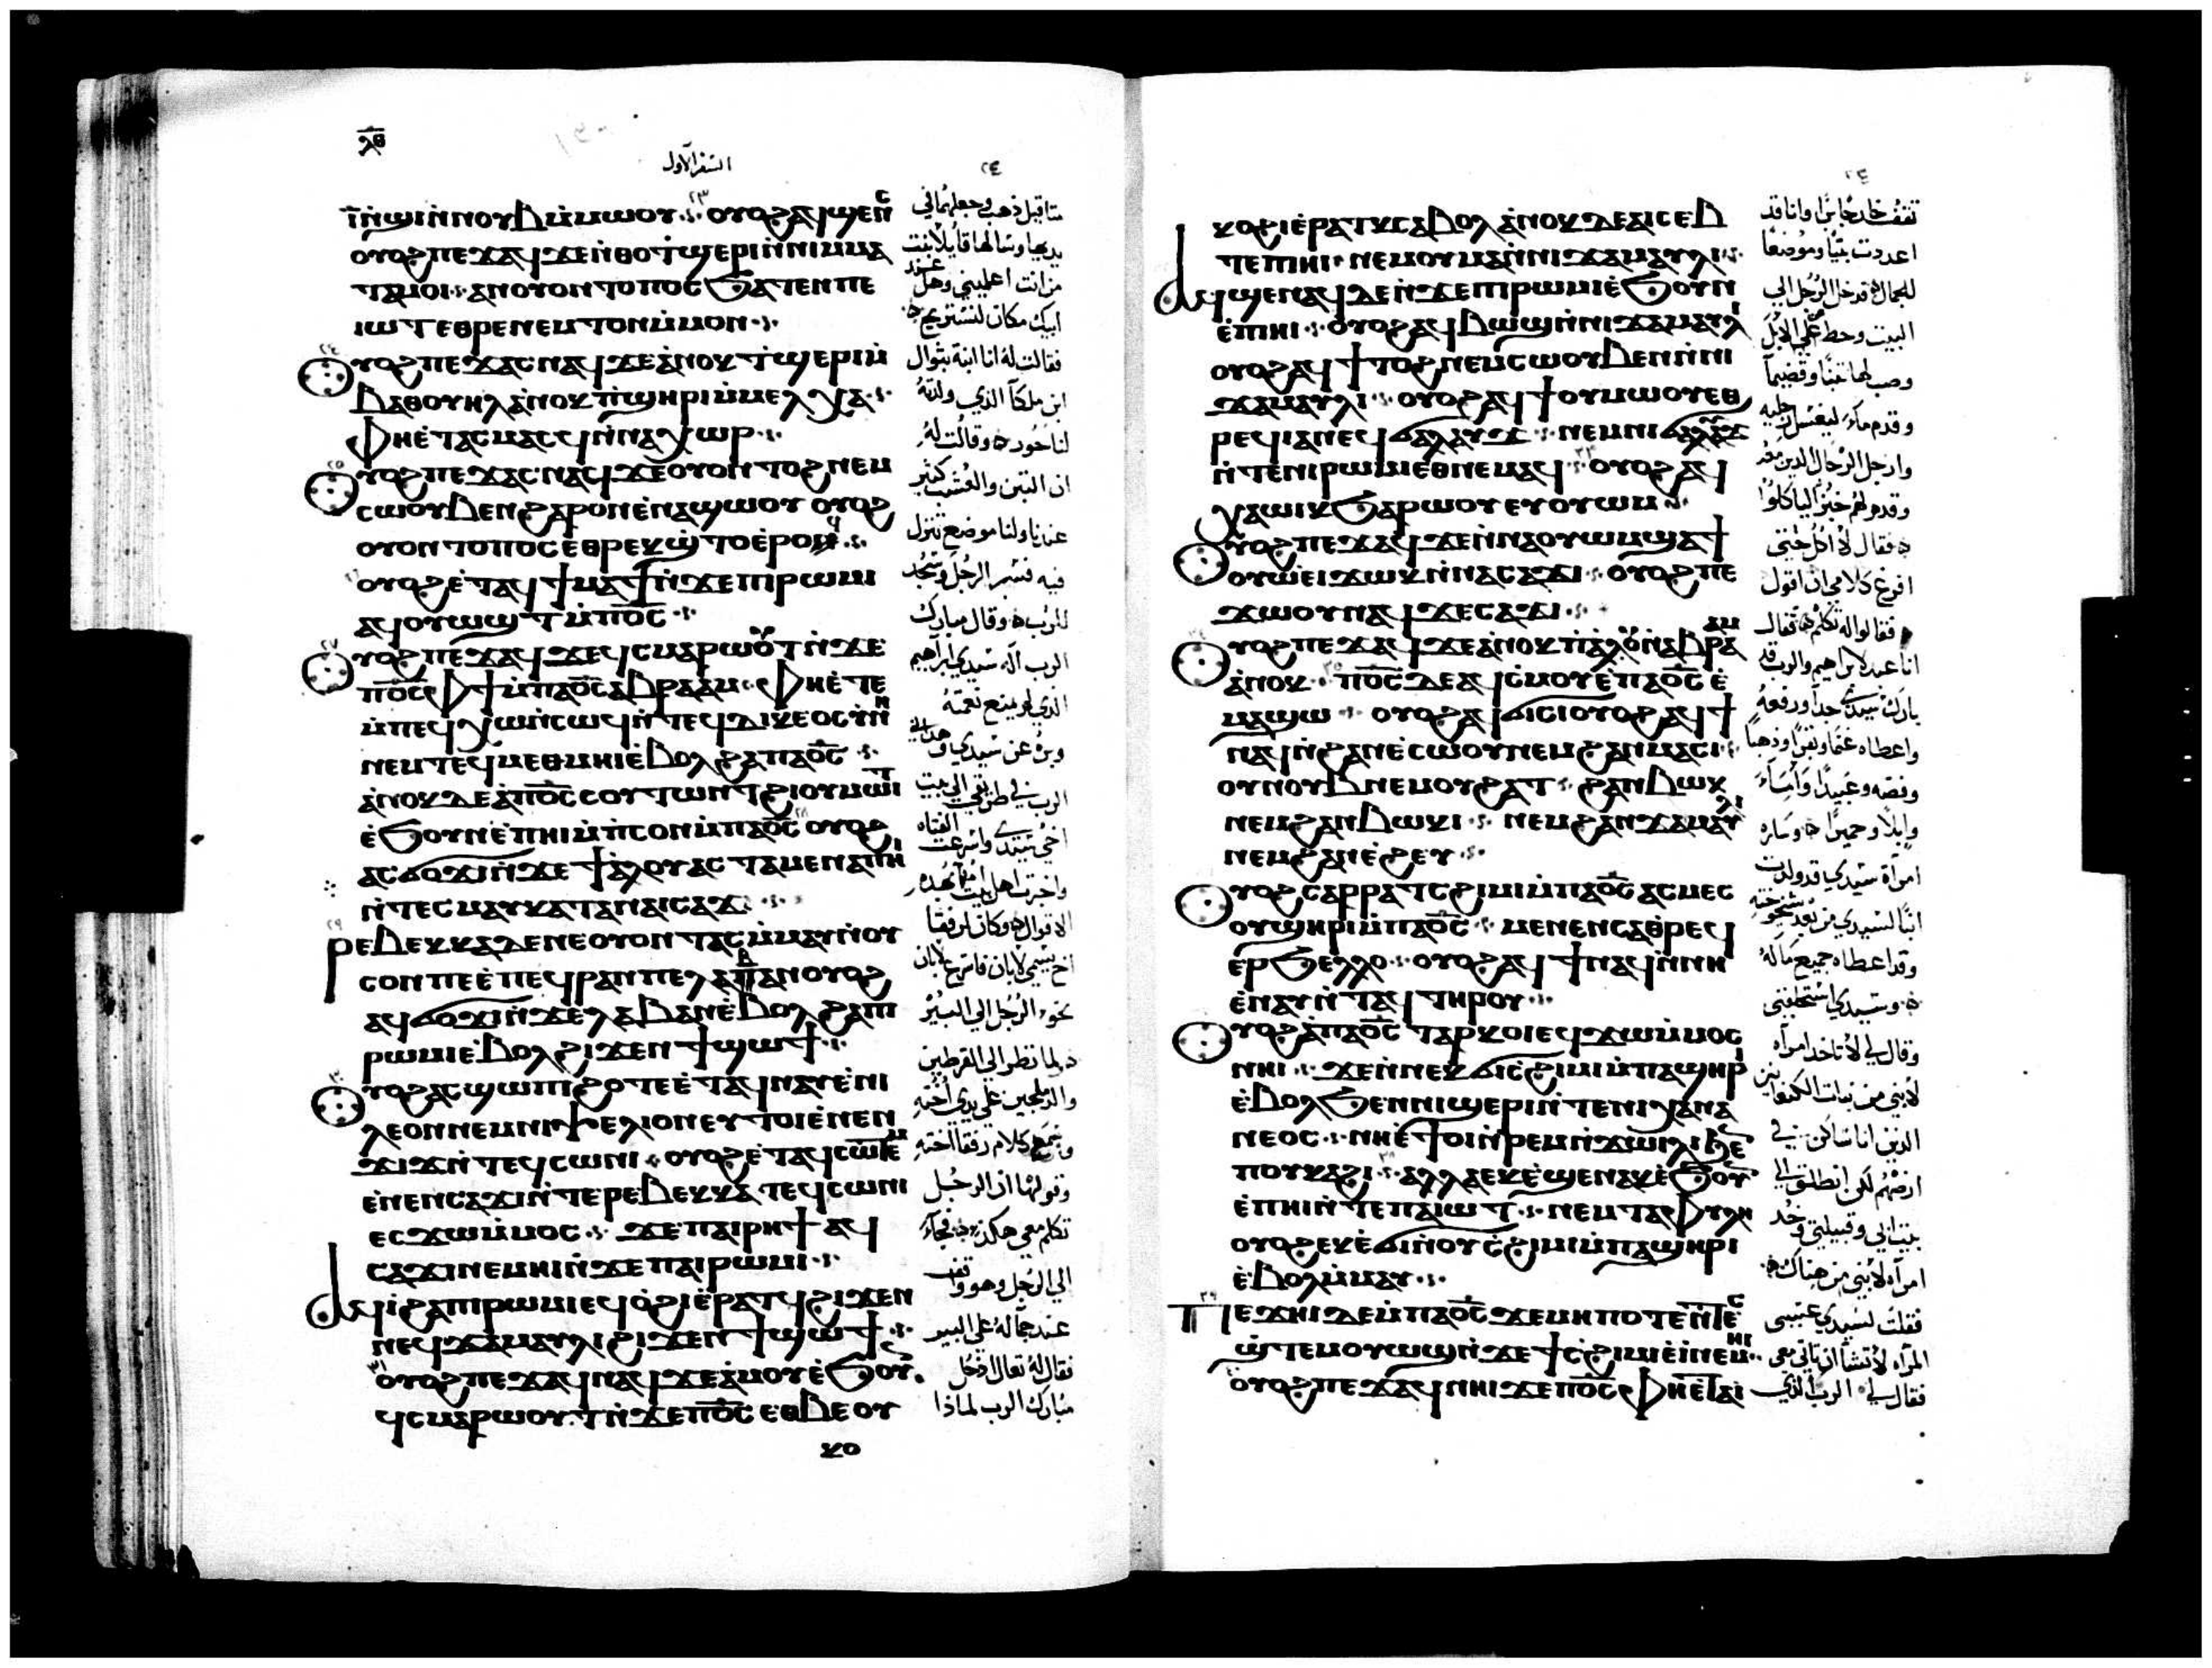 ⲗ̅ⲑ̅
السفر الاول
٢٤
ⲓ̅ ⲛ̀ϣⲓ ⲛ̀ⲛⲟⲩⲃ ⲙ̀ⲙⲱⲟⲩ ⲟⲩⲟϩ ⲁϥϣⲉⲛⲥ
ⲟⲩⲟϩ ⲡⲉϫⲁϥ ϫⲉ ⲛ̀ⲑⲟ ⲧ̀ϣⲉⲣⲓ ⲛ̀ⲛⲓⲙ ⲙⲁ
ⲧⲁⲙⲟⲓ ⲁⲛ ⲟⲩⲟⲛ ⲧⲟⲡⲟⲥ ϧⲁⲧⲉⲛ ⲡⲉ
ⲓⲱⲧ ⲉⲑⲣⲉⲛⲉⲙⲧⲟⲛ ⲙ̀ⲙⲟⲛ
ⲟⲩⲟϩ ⲡⲉϫⲁⲥ ⲛⲁϥ ϫⲉ ⲁ̀ⲛⲟⲕ ⲧ̀ϣⲉⲣⲓ ⲙ̀
ⲃⲁⲑⲟⲩⲏⲗ ⲁ̀ⲛⲟⲕ ⲡ̀ϣⲏⲣⲓ ⲙ̀ⲙⲉⲗⲭⲁ
ⲫⲏ ⲉ̀ⲧⲁⲥⲙⲁⲥϥ ⲛ̀ⲛⲁⲭⲱⲣ
ⲟⲩⲟϩ ⲡⲉϫⲁⲥ ⲛⲁϥ ϫⲉ ⲟⲩⲟⲛ ⲧⲟϩ ⲛⲉⲙ
ⲥⲱⲟⲩⲃⲉⲛ ϩⲁⲣⲟⲛ ⲉⲛⲁϣⲱⲟⲩ ⲟⲩⲟϩ
ⲟⲩⲟⲛ ⲧⲟⲡⲟⲥ ⲉⲑⲣⲉⲕϣⲧⲟ ⲉ̀ⲣⲟϥ
ⲟⲩⲟϩ ⲉ̀ⲧⲁϥϯⲙⲁϯ ⲛ̀ϫⲉ ⲡⲓⲣⲱⲙⲓ
ⲁϥⲟⲩⲱϣⲧ ⲙ̀ⲡⲟ̅ⲥ̅
ⲟⲩⲟϩ ⲡⲉϫⲁϥ ϫⲉ ϥⲥⲙⲁⲣⲱⲟⲩⲧ ⲛ̀ϫⲉ
ⲡⲟ̅ⲥ̅ ⲫϯ ⲙ̀ⲡⲁⲟ̅ⲥ̅ ⲁⲃⲣⲁⲁⲙ ⲫⲏ ⲉ̀ⲧⲉ
ⲙ̀ⲡⲉϥⲭⲱ ⲛ̀ⲥⲱϥ ⲛ̀ⲧⲉϥⲇⲓⲕⲉⲟⲥⲩⲛⲏ
ⲛⲉⲙ ⲧⲉϥⲙⲉⲑⲙⲏⲓ ⲉ̀ⲃⲟⲗϩⲁ ⲡⲁⲟ̅ⲥ̅
ⲁ̀ⲛⲟⲕ ⲇⲉ ⲁ̀ ⲡⲟ̅ⲥ̅ ⲥⲟⲩⲧⲱⲛⲧ ϩⲓ ⲟⲩⲙⲱⲓⲧ
ⲉ̀ϧⲟⲩⲛ ⲉ̀ⲡⲏⲓ ⲙ̀ⲡⲥⲟⲛ ⲙ̀ⲡⲁⲟ̅ⲥ̅ ⲟⲩⲟϩ
ⲁⲥϭⲟϫⲓ ⲛ̀ϫⲉ ϯⲁⲗⲟⲩ ⲁⲥⲧⲁⲙⲉ ⲛⲁ ⲡⲏⲓ
ⲛ̀ⲧⲉⲥⲙⲁⲩ ⲕⲁⲧⲁ ⲛⲁⲓⲥⲁϫⲓ
ⲣⲉⲃⲉⲕⲕⲁ ⲇⲉ ⲛⲉ ⲟⲩⲟⲛⲧⲁⲥ ⲙ̀ⲙⲁⲩ ⲛ̀ⲟⲩ
ⲥⲟⲛ ⲡⲉ ⲉ̀ⲡⲉϥⲣⲁⲛ ⲡⲉ ⲗⲁⲃⲁⲛ ⲟⲩⲟϩ
ⲁϥϭⲟϫⲓ ⲛ̀ϫⲉ ⲗⲁⲃⲁⲛ ⲉ̀ⲃⲟⲗ ϩⲁ ⲡⲓ
ⲣⲱⲙⲓ ⲉ̀ⲃⲟⲗ ϩⲓϫⲉⲛ ϯϣⲱϯ
ⲟⲩⲟϩ ⲁⲥϣⲱⲡⲓ ϩⲟⲧⲉ ⲉ̀ⲧⲁϥⲛⲁⲩ ⲉ̀ⲛⲓ
ⲗⲉⲟⲛ ⲛⲉⲙ ⲛⲓⲯⲉⲗⲓⲟⲛ ⲉⲩⲧⲟⲓ ⲉ̀ⲛⲉⲛ
ϫⲓϫ ⲛ̀ⲧⲉϥⲥⲱⲛⲓ ⲟⲩⲟϩ ⲉ̀ⲧⲁϥⲥⲱⲧⲉⲙ
ⲉ̀ⲛⲉⲛⲥⲁϫⲓ ⲛ̀ⲧⲉ ⲣⲉⲃⲉⲕⲕⲁ ⲧⲉϥⲥⲱⲛⲓ
ⲉⲥϫⲱ ⲙ̀ⲙⲟⲥ ϫⲉ ⲡⲁⲓⲣⲏϯ ⲁϥ
ⲥⲁϫⲓ ⲛⲉⲙⲏⲓ ⲛ̀ϫⲉ ⲡⲁⲓⲣⲱⲙⲓ
ⲁϥⲓ̀ ϩⲁ ⲡⲓⲣⲱⲙⲓ ⲉϥⲟ̀ϩⲓ ⲉ̀ⲣⲁⲧϥ ϩⲓϫⲉⲛ
ⲛⲉϥϫⲁⲙⲁⲩⲗⲓ ϩⲓϫⲉⲛ ϯϣⲱϯ
ⲟⲩⲟϩ ⲡⲉϫⲁϥ ⲛⲁϥ ϫⲉ ⲁ̀ⲙⲟⲩ ⲉ̀ϧⲟⲩⲛ
ϥⲥⲙⲁⲣⲱⲟⲩⲧ ⲛ̀ϫⲉ ⲡⲟ̅ⲥ̅ ⲉⲑⲃⲉ ⲟⲩ
ⲕⲟ
مثاقيل ذهب وجعلهما في
يديها وسالها قايلا بنت
من انت اعلميني وهل عند
ابيك مكان لنستريح
فقالت له انا ابنة بتوال
ابن ملكا الذي ولدته
لناحور وقالت له
ان التبن والعشب كثير
عندنا ولنا موضع تنزل
فيه فسر الرجل وسجد
للرب وقال مبارك
الرب اله سيدي ابراهيم
الذي لم يمنع نعمته
وبره عن سيدي
الرب في طريقي الى بيت
اخي سيدي واسرعت الفتاه
واخبرت اهل بيت امها بهذه
الاقوال وكان لرفقا
اخ يسمى لابان فاسرع لابان
نحو الرجل الى البير
لما نظر الى القرطين
والدملجين على يدي اخته
وسمع كلام رفقا اخته
وقولها ان الرجل
تكلم معي هكذي فجآء
الى الرجل وهو واقف
عند جماله على البير
فقال له تعال ادخل
مبارك الرب لماذا
٢٤
ⲕⲟϩⲓ ⲉ̀ⲣⲁⲧⲕ ⲥⲁⲃⲟⲗ ⲁ̀ⲛⲟⲕ ⲇⲉ ⲁⲓⲥⲉⲃ
ⲧⲉ ⲡⲓⲏⲓ ⲛⲉⲙ ⲟⲩⲙⲁ ⲛ̀ⲛⲓϫⲁⲙⲁⲩⲗⲓ
ⲁϥϣⲉⲛⲁϥ ⲇⲉ ⲛ̀ϫⲉ ⲡⲓⲣⲱⲙⲓ ⲉ̀ϧⲟⲩⲛ
ⲉ̀ⲡⲏⲓ ⲟⲩⲟϩ ⲁϥⲃⲱϣ ⲛ̀ⲛⲓϫⲁⲙⲁⲩⲗⲓ
ⲟⲩⲟϩ ⲁϥϯ ⲧⲟϩ ⲛⲉⲙ ⲥⲱⲟⲩⲃⲉⲛ ⲛ̀ⲛⲓ
ϫⲁⲙⲁⲩⲗⲓ ⲟⲩⲟϩ ⲁϥϯ ⲟⲩⲙⲱⲟⲩ ⲉⲑ
ⲣⲉϥⲓⲁ ⲛⲉϥϭⲁⲗⲁⲩϫ ⲛⲉⲙ ⲛⲓϭⲁⲗⲁⲩϫ
ⲛ̀ⲧⲉ ⲛⲓⲣⲱⲙⲓ ⲉⲑⲛⲉⲙⲁϥ ⲟⲩⲟϩ ⲁϥ
ⲭⲁ ⲱⲓⲕ ϧⲁⲣⲱⲟⲩ ⲉⲩⲟⲩⲱⲙ
ⲟⲩⲟϩ ⲡⲉϫⲁϥ ϫⲉ ⲛ̀ⲛⲁⲟⲩⲱⲙ ϣⲁϯ
ⲟⲩⲱ ⲉⲓϫⲱⲕ ⲛ̀ⲛⲁⲥⲁϫⲓ ⲟⲩⲟϩ ⲡⲉ
ϫⲱⲟⲩ ⲛⲁϥ ϫⲉ ⲥⲁϫⲓ
ⲟⲩⲟϩ ⲡⲉϫⲁϥ ϫⲉ ⲁ̀ⲛⲟⲕ ⲡ̀ⲁⲗⲟⲩ ⲛ̀ⲁⲃⲣⲁⲁⲙ
ⲁ̀ⲛⲟⲕ ⲡⲟ̅ⲥ̅ ⲇⲉ ⲁϥⲥⲙⲟⲩ ⲉ̀ⲡⲁⲟ̅ⲥ̅ ⲉ̀
ⲙⲁϣⲱ ⲟⲩⲟϩ ⲁϥϭⲓⲥⲓ ⲟⲩⲟϩ ⲁϥϯ
ⲛⲁϥ ⲛ̀ϩⲁⲛⲉ̀ⲥⲱⲟⲩ ⲛⲉⲙ ϩⲁⲛⲙⲁⲥⲓ
ⲟⲩⲛⲟⲩⲃ ⲛⲉⲙ ⲟⲩϩⲁⲧ ϩⲁⲛⲃⲱⲕ
ⲛⲉⲙ ϩⲁⲛⲃⲱⲕⲓ ⲛⲉⲙ ϩⲁⲛϫⲁⲙⲁⲩⲗⲓ
ⲛⲉⲙ ϩⲁⲛⲉ̀ϩⲉⲩ
ⲟⲩⲟϩ ⲥⲁⲣⲣⲁ ⲧⲥϩⲓⲙⲓ ⲙ̀ⲡⲁⲟ̅ⲥ̅ ⲁⲥⲙⲉⲥ
ⲟⲩϣⲏⲣⲓ ⲙ̀ⲡⲁⲟ̅ⲥ̅ ⲙⲉⲛⲉⲛⲥⲁ ⲑⲣⲉϥ
ⲉⲣϧⲉⲗⲗⲟ ⲟⲩⲟϩ ⲁϥϯ ⲛⲁϥ ⲛ̀ⲛⲏ
ⲉ̀ⲛⲁⲩⲛ̀ⲧⲁϥ ⲧⲏⲣⲟⲩ
ⲟⲩⲟϩ ⲁ̀ ⲡⲁⲟ̅ⲥ̅ ⲧⲁⲣⲕⲟⲓ ⲉϥϫⲱ ⲙ̀ⲙⲟⲥ
ⲛⲏⲓ ϫⲉ ⲛ̀ⲛⲉⲕϭⲓ ⲥ̀ϩⲓⲙⲓ ⲙ̀ⲡⲁϣⲏⲣⲓ
ⲉ̀ⲃⲟⲗ ϧⲉⲛ ⲛⲓϣⲉⲣⲓ ⲛ̀ⲧⲉ ⲛⲓⲭⲁⲛⲁ
ⲛⲉⲟⲥ ⲛⲏ ⲉ̀ϯⲟⲓ ⲛ̀ⲣⲉⲙⲛ̀ϫⲱⲓⲗⲓ ϧⲉⲛ
ⲡⲟⲩⲕⲁϩⲓ ⲁⲗⲗⲁ ⲉⲕⲉ̀ϣⲉⲛⲁⲕ ⲉ̀ϧⲟⲩⲛ
ⲉ̀ⲡⲏⲓ ⲛ̀ⲧⲉ ⲡⲁⲓⲱⲧ ⲛⲉⲙ ⲧⲁⲫⲩⲗⲏ
ⲟⲩⲟϩ ⲉⲕⲉ̀ϭⲓ ⲛ̀ⲟⲩⲥ̀ϩⲓⲙⲓ ⲙ̀ⲡⲁϣⲏⲣⲓ
ⲉ̀ⲃⲟⲗ ⲙ̀ⲙⲁⲩ
ⲡⲉϫⲏⲓ ⲇⲉ ⲙ̀ⲡⲁⲟ̅ⲥ̅ ϫⲉ ⲙⲏⲡⲟⲧⲉ ⲛ̀ⲧⲉⲥ
ϣ̀ⲧⲉⲙⲟⲩⲱϣ ⲛ̀ϫⲉ ϯⲥ̀ϩⲓⲙⲓ ⲉ̀ⲓ̀ ⲛⲉⲙⲏⲓ
ⲟⲩⲟϩ ⲡⲉϫⲁϥ ⲛⲏⲓ ϫⲉ ⲡⲟ̅ⲥ̅ ⲫⲏ ⲉ̀ⲧⲁⲓ
تقف خارجا برا وانا قد
اعددت بيتا وموضعا
للجمال قد خل الرجل الى
البيت وحط عن الابل
وصب لها تبنا وقضيما
وقدم مآء ليغسل رجليه
وارجل الرجال الذين معه
وقدم لهم خبزا لياكلوا
فقال لا اكل حتى
افرغ كلامي ان اقول
فقالوا له تكلم فقال
انا عبد لابراهيم والرب قد
بارك سيدي جدا ورفعه
واعطاه غنما وبقرا وذهبا
وفضه وعبيدا وامآء
وابلا وحميرا وساره
امراة سيدي قد ولدت
ابنا لسيدي من بعد شيخوخته
وقد اعطاه جميع ماله
وسيدي استحلفني
وقال لي لا تاخد امراه
لابني من بنات الكنعانيين
الذين انا ساكن في
ارضهم لكن انطلق الى
بيت ابي وقبيلتي وخد
امراه لابني من هناك
فقلت لسيدي عسى
المراه لا تشا ان تاتي معي
فقال لي الرب الذي